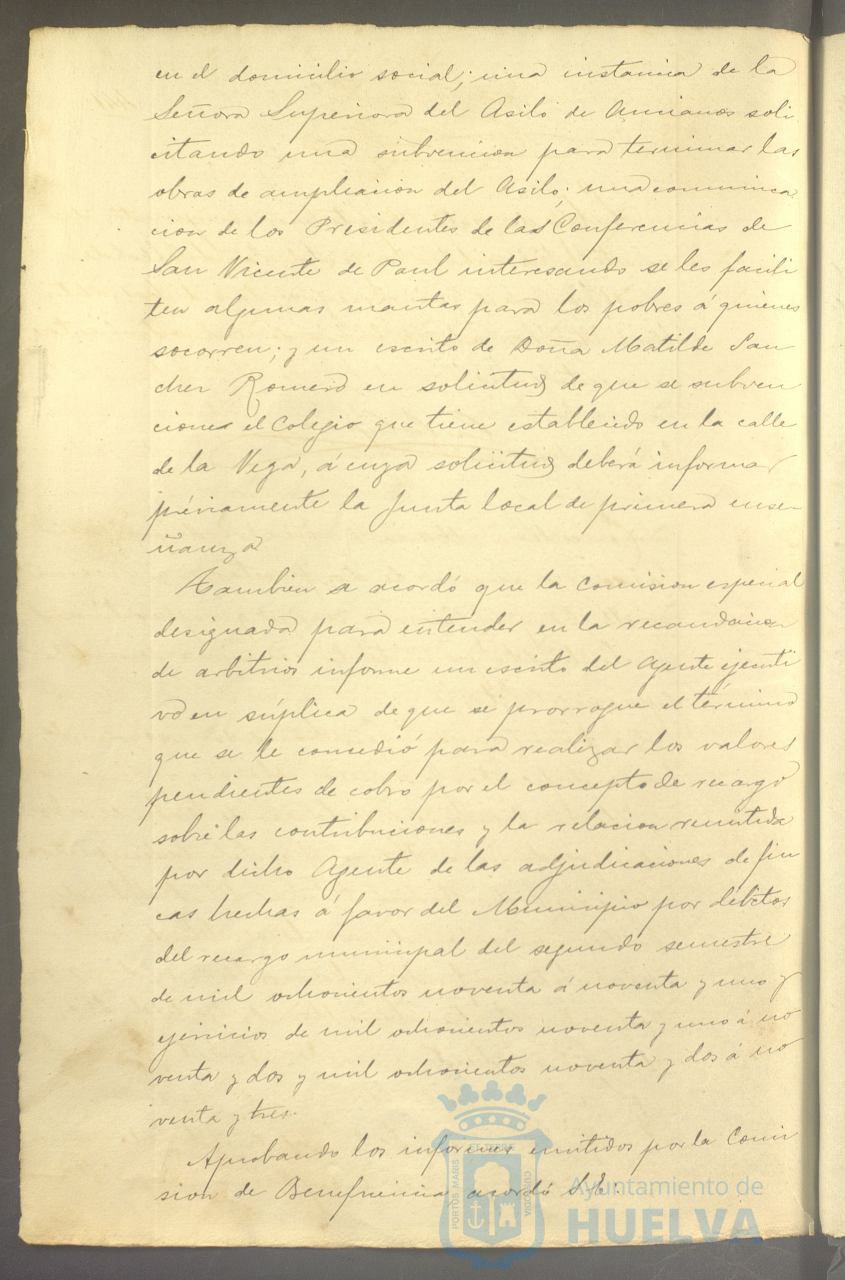 en el domicilio social; una instancia de la
Señora Superiora del Asilo de Ancianos soli
citando una subvencion para terminar las
obras de ampliacion del Asilo; una comunica
cion de los Presidentes de las Conferencias de
San Vicente de Paul interesando se les facili
ten algunas mantas para los pobres á quienes
socorren; y un escrito de Doña Matilde San
chez Romero en solicitud de que se subven
cione el Colegio que tiene establecido en la calle
de la Vega, á cuya solicitud deberá informar
préviamente la Junta local de primera ense-
ñanza
Tambien se acordó que la Comision especial
designada para entender en la recaudacion
de arbitrios informe un escrito del Agente ejecuti
vo en súplica de que se prorrogue el término
que se le concedió para realizar los valores
pendientes de cobro por el concepto de recargo
sobre las contribuciones y la relacion remitida
por dicho Agente de las adjudicaciones de fin
cas hechas á favor del Municipio por débitos
del recargo municipal del segundo semestre
de mil ochocientos noventa á noventa y uno y
ejercicios de mil ochocientos noventa y uno á no
venta y dos y mil ochocientos noventa y dos á no
venta y tres.
Aprobando los informes emitidos por la Comi
sion de Beneficencia acordó S.E:
PORTUS MARIS ET TERRE CUSTODIA
Ayuntamiento de
HUELVA